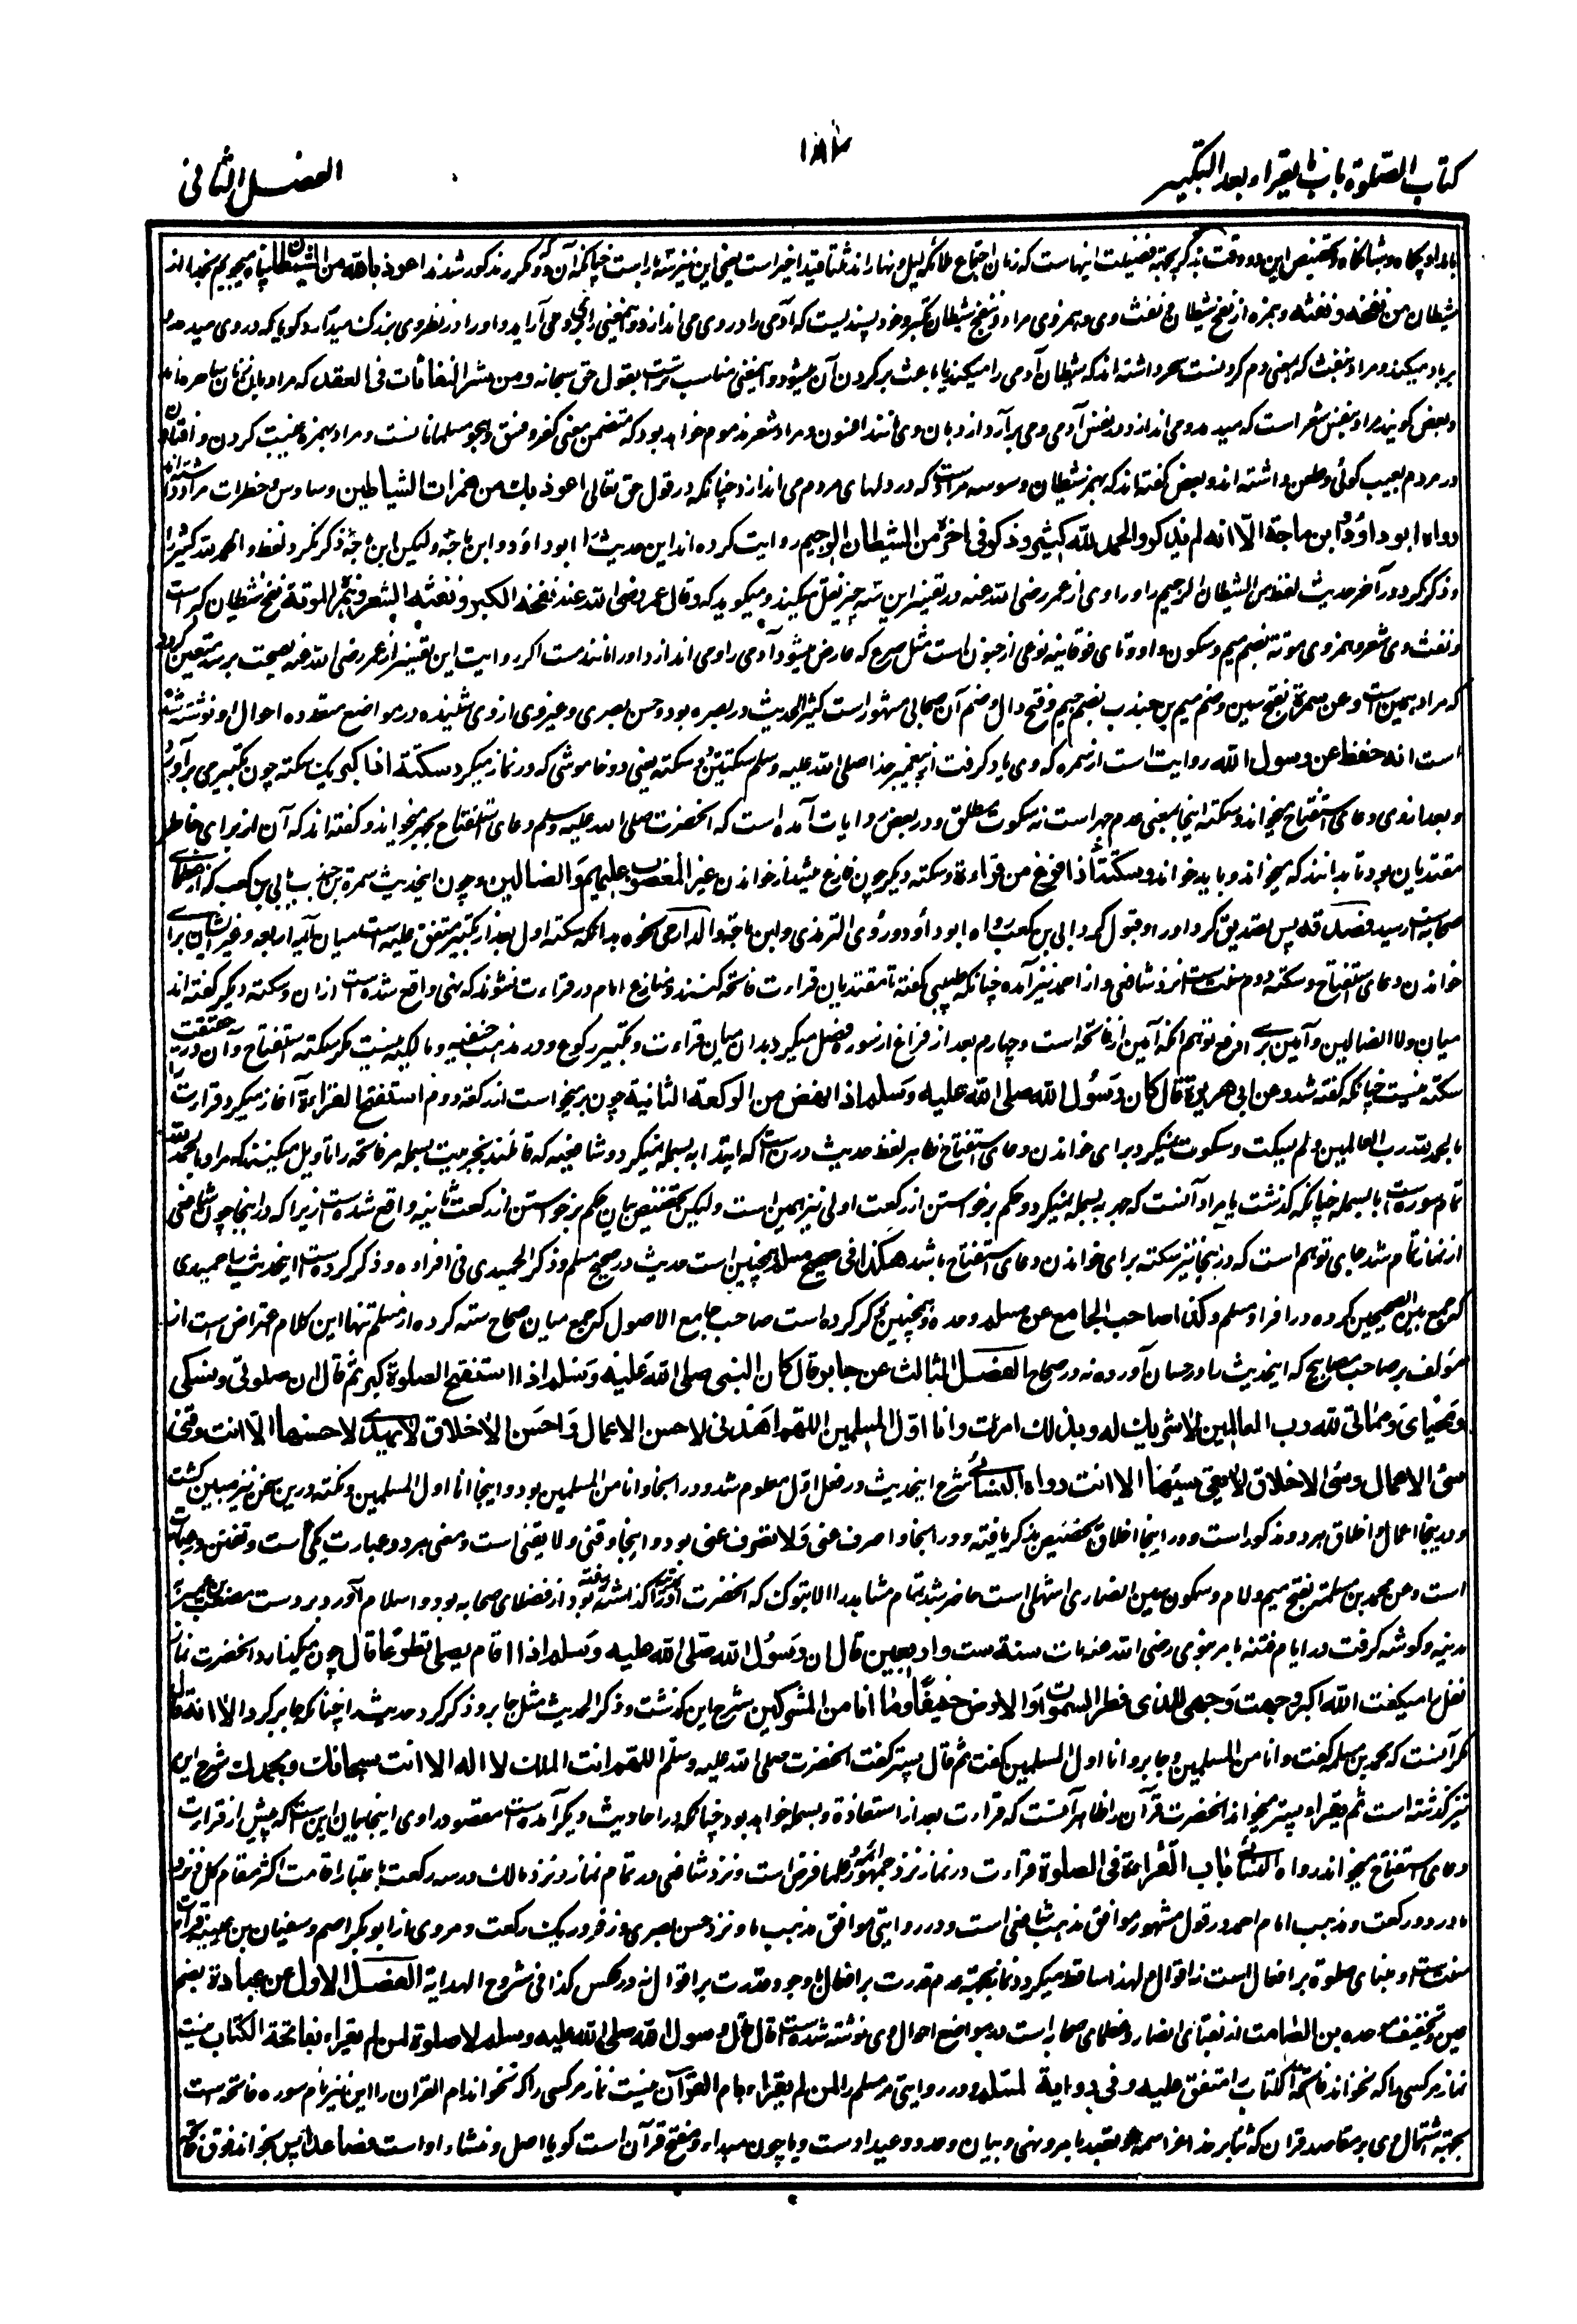 كتاب الصلوة باب ما يقرأ بعد التكبير
الفصل الثانى
بامداد پگاه و شبانگاه و تخصیص این دو وقت بذکر بجهة فضیلت اینهاست که زمان اجتماع ملائکه لیل و نهار اند ثلثا قید اخیر است یعنی این نیز سه بار است چنانکه آن دو دیگر مذکور شدند اعوذ بالله من الشیطان پناه میجویم بخدا از
شیطان من نفخه و نفثه و همزه از نفخ شیطان و نفث وی و همز وی مراد بنفخ شیطان تکبر و خود پسندیست که آدمی را در وی می اندازد و بمعنی می آراید و او را در نظر وی بزرگ میدارد گویا که در وی میدمد
بر باد میکند و مراد بنفث که بمعنی دم کردنست سحر داشته اند که شیطان آدمی را میکند یا باعث بر کردن آن میشود و این معنی مناسب ترست بقول حق سبحانه و من شر النفاثات فی العقد که مراد بآن زنان ساحره اند
و بعض گویند مراد بنفث شعر است که میدمد و می اندازد در نفس آدمی و می برآرد از دهان وی مانند افسون و مراد شعر مذموم خواهد بود که متضمن معنی کفر و فسق و هجو مسلمانانست و مراد بهمزه غیبت کردن و افتادن
در مردم بعیب گوئی و طعن داشته اند و بعض گفته اند که بهمز شیطان وسوسه مرادست که در دلهای مردم می اندازد چنانکه در قول حق تعالی اعوذ بك من همزات الشیاطین وساوس و خطرات مراد داشته اند
رواه ابو داؤد و ابن ماجة الا انه لم یذکر والحمد لله کثیرا وذکر فی اخره من الشیطان الرجیم روایت کرده اند این حدیث را ابو داؤد و ابن ماجه ولیکن ابن ماجه ذکر نکرد لفظ والحمد لله کثیرا را
و ذکر کرد در آخر حدیث لفظ من الشیطان الرجیم را و راوی از عمر رضی الله عنه در تفسیر این سه چیز نقل میکند و میگوید که وقال عمر رضی الله عنه نفخه الکبر و نفثه الشعر و همزه الموتة نفخ شیطان کبر است
و نفث وی شعر و همز وی موته بضم میم و سکون واو و تای فوقانیه نوعی از جنون است مثل صرع که عارض میشود آدمی را و می اندازد او را مانند مست اگر روایت این تفسیر از عمر رضی الله عنه بصحت برسد متعین گردد
که مراد همین است وعن سمرة بفتح سین و ضم میم بن جندب بضم جیم و فتح دال و ضم آن صحابی مشهور است کثیر الحدیث در بصره بوده و حسن بصری و غیر وی از وی شنیده در مواضع متعدده احوال او نوشته شده
است انه حفظ عن رسول الله روایت است از سمره که وی یاد گرفت از پیغمبر خدا صلی الله علیه وسلم سکتتین دو سکته یعنی دو خاموشی که در نماز میکرد سکتة اذا کبر یک سکته چون تکبیر می برآورد
و بعد از وی دعای استفتاح میخواند و سکته اینجا بمعنی عدم جهر است نه سکوت مطلق و در بعض روایات آمده است که آنحضرت صلی الله علیه وسلم دعای استفتاح بجهر میخواند و گفته اند که آن از برای خاطر
مقتدیان بود تا بدانند که میخواند و باید خواند وسکتة اذا فرغ من قراءة و سکته دیگر چون فارغ میشد از خواندن غیر المغضوب علیهم ولا الضالین و چون این حدیث سمرة بن جندب بابی بن کعب که از علمای
صحابه است رسید فصدقه پس تصدیق کرد او را و قبول کرد ابی بن کعب رواه ابو داؤد و روی الترمذی وابن ماجة والدارمی نحوه بدانکه سکته اول بعد از تکبیر متفق علیه است میان ائمه اربعه و غیر ایشان برای
خواندن دعای استفتاح و سکته دوم سنت است نزد شافعی و از احمد نیز آمده چنانکه طیبی گفته تا مقتدیان قراءت فاتحه کنند و منازع امام در قراءت نشوند که نهی واقع شده است ازان و سکته دیگر گفته اند
میان ولا الضالین و آمین برای دفع توهم آنکه آمین از فاتحه است و چهارم بعد از فراغ از سوره فصل میگیرد بدان میان قراءت و تکبیر رکوع و در مذهب حنفیه و مالکیه نیست مگر سکته استفتاح و آن در حقیقت
سکته نیست چنانکه گفته شد وعن ابی هریرة قال کان رسول الله صلی الله علیه وسلم اذا نهض من الرکعة الثانیة چون برمیخاست از رکعت دوم استفتح القراءة آغاز میکرد قراءت را
بالحمد لله رب العالمین ولم یسکت و سکوت نمیکرد برای خواندن دعای استفتاح ظاهر لفظ حدیث درین است که ابتدا به بسمله نمیکرد و شافعیه که قائلند بجزئیت بسمله مر فاتحه را تاویل میکنند که مراد بالحمد لله
تمام سوره است با بسمله چنانکه گذشت یا مراد آنست که جهر به بسمله نمیکرد و حکم برخواستن از رکعت اولی نیز همین است ولیکن تخصیص بیان حکم برخواستن از رکعت ثانیه واقع شده است زیرا که در اینجا چون شفعی
از نماز تمام شد جای توهم است که در اینجا نیز سکته برای خواندن دعای استفتاح باشد هکذا فی صحیح مسلم همچنین است حدیث در صحیح مسلم وذکر الحمیدی فی افراده و ذکر کرده است این حدیث را حمیدی
که جمع بین الصحیحین کرده در افراد مسلم وکذا صاحب الجامع عن مسلم وحده و همچنین ذکر کرده است صاحب جامع الاصول که جمع میان صحاح سته کرده از مسلم تنها این کلام اعتراض است از
مؤلف بر صاحب مصابیح که این حدیث را در حسان آورده نه در صحاح الفصل الثالث عن جابر قال کان النبی صلی الله علیه وسلم اذا استفتح الصلوة کبر ثم قال ان صلوتی ونسکی
ومحیای ومماتی لله رب العالمین لا شریك له وبذلك امرت وانا اول المسلمین اللهم اهدنی لاحسن الاعمال واحسن الاخلاق لا یهدی لاحسنها الا انت وقنی
سیئ الاعمال وسیئ الاخلاق لا یقی سیئها الا انت رواه النسائی شرح این حدیث در فصل اول معلوم شد و در آنجا وانا من المسلمین بود و اینجا انا اول المسلمین و نکته درین سخن نیز مبین گشت
و در آنجا اعمال و اخلاق هر دو مذکور است و در اینجا اخلاق بتخصیص ذکر یافته و در آنجا واصرف عنی ولا یصرف عنی بود و اینجا وقنی ولا یقی است و معنی هر دو عبارت یکی است و تفنن در عبارت
است وعن محمد بن مسلمة بفتح میم و لام و سکون سین انصاری اشهلی است حاضر شد تمام مشاهد را الا تبوک که آنحضرت او را گذاشته بود از فضلای صحابه بود و اسلام آورد بر دست مصعب بن عمیر در
مدینه و گوشه گرفت در ایام فتنه بامر نبوی رضی الله عنه مات سنة ست واربعین قال ان رسول الله صلی الله علیه وسلم اذا قام یصلی تطوعا قال چون میگذارد آنحضرت نماز
نفل را میگفت الله اکبر وجهت وجهی للذی فطر السموات والارض حنیفا وما انا من المشرکین شرح این گذشت وذکر الحدیث مثل جابر و ذکر کرد حدیث را چنانکه جابر کرد الا انه قال
مگر آنست که محمد بن مسلمه گفت وانا من المسلمین و جابر وانا اول المسلمین گفت ثم قال پستر گفت آنحضرت صلی الله علیه وسلم اللهم انت الملك لا اله الا انت سبحانك وبحمدك شرح این
نیز گذشته است ثم یقرأ پستر میخواند آنحضرت قرآن را ظاهر آنست که قراءت بعد از استعاذه و بسمله خواهد بود چنانکه در احادیث دیگر آمده است مقصود راوی اینجا بیان این است که پیش از قراءت
دعای استفتاح میخواند رواه النسائی باب القراءة فی الصلوة قراءت در نماز نزد جمهور علما فرض است و نزد شافعی در تمام نماز و نزد مالک در سه رکعت باعتبار اقامت اکثر مقام کل و نزد
ما در دو رکعت و مذهب امام احمد در قول مشهور موافق مذهب شافعی است و در روایتی موافق مذهب ما و نزد حسن بصری و زفر در یک رکعت و مروی از ابو بکر اصم و سفیان بن عیینه قراءت
سنت است و مبنای صلوة بر افعال است نه اقوال و لهذا ساقط میگردد نماز بجهة عدم قدرت بر افعال با وجود قدرت بر اقوال نه در عکس کذا فی شروح الهدایة الفصل الاول عن عبادة بضم
عین و تخفیف موحده بن الصامت از نقبای انصار و فضلای صحابه است در مواضع احوال وی نوشته شده است قال قال رسول الله صلی الله علیه وسلم لا صلوة لمن لم یقرأ بفاتحة الکتاب نیست
نماز مر کسی را که نخواند فاتحة الکتاب را متفق علیه وفی روایة لمسلم و در روایتی مر مسلم را لمن لم یقرأ بام القرآن نیست نماز مر کسی را که نخواند ام القرآن را این نیز نام سوره فاتحه است
بجهة اشتمال وی بر مقاصد قرآن که ثنا بر خدا عز اسمه و تعبد بامر و نهی و بیان وعد و وعید اوست و یا چون مبداء و مفتح قرآن است گویا اصل و منشاء اوست فصاعدا پس بخواند فوق فاتحه